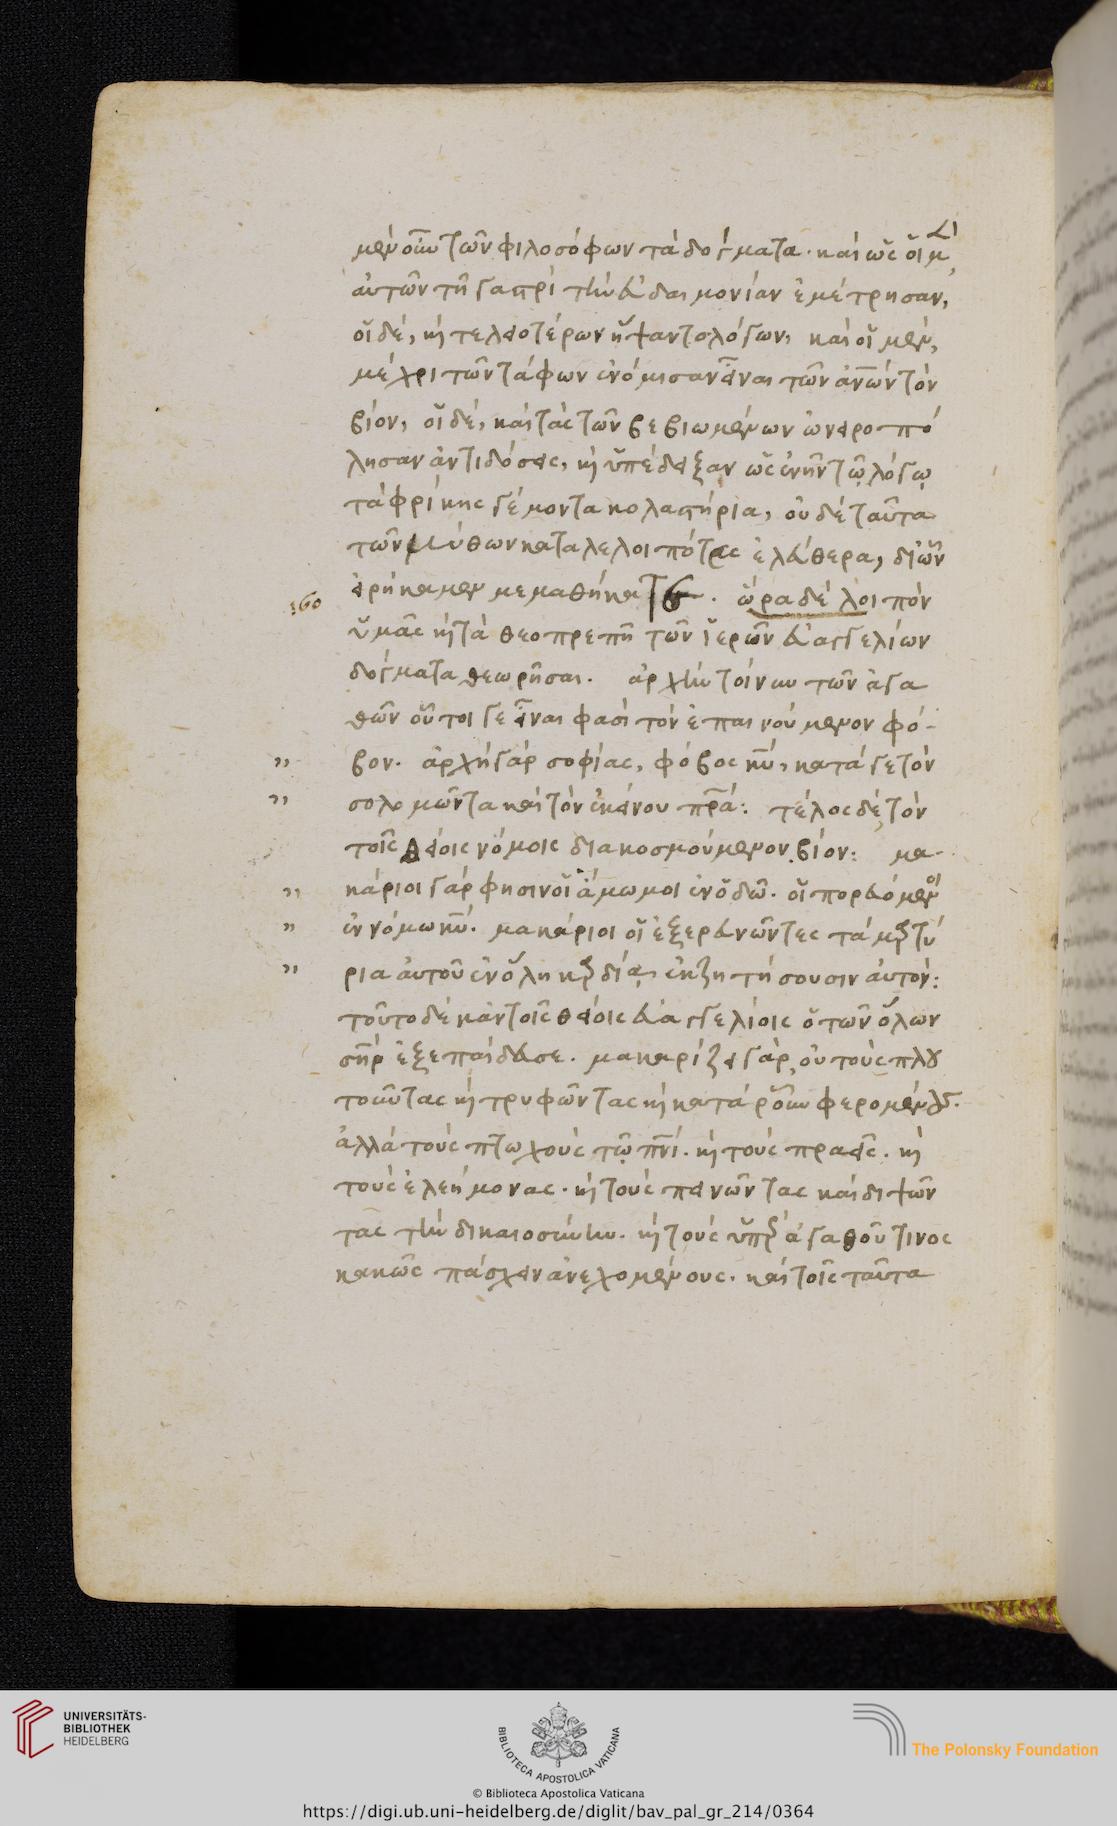 μὲν οὖν τῶν φιλοσόφων τὰ δόγματα. καὶ ὡς οἱ μὲν
αὐτῶν τῇ γαστρὶ τὴν εὐδαιμονίαν ἐμέτρησαν,
οἱ δέ, κὶ τελεοτέρων ἥψαντο λόγων, καὶ οἱ μὲν,
μέχρι τῶν τάφων ἐνόμισαν εἶναι τῶν ἀνῶν τὸν
βίον, οἱ δέ, καὶ τὰς τῶν βεβιωμένων ὠνειροπό
λησαν ἀντιδόσεις, κὶ ὑπέδειξαν ὡς ἐνῆν τῷ λόγῳ
τὰ φρίκης γέμοντα κολαστήρια, οὐδὲ ταῦτα
τῶν μύθων καταλελοιπότες ἐλεύθερα, δι ὧν
εἰρήκαμεν μεμαθήκατε. ὥρα δὲ λοιπὸν
160
ὑμᾶς κὶ τὰ θεοπρεπῆ τῶν ἱερῶν εὐαγγελίων
δόγματα θεωρῆσαι. ἀρχὴν τοίνυν τῶν ἀγα
θῶν οὗτοί γε εἶναι φασὶ τὸν ἐπαινούμενον φό-
" βον. ἀρχὴ γὰρ σοφίας, φόβος κυ, κατά γε τὸν
" σολομῶντα καὶ τὸν ἐκείνου πρα: τέλος δὲ τὸν
τοῖς θείοις νόμοις διακοσμούμενον βίον: μα-
" κάριοι γάρ φησιν οἱ ἄμωμοι ἐν ὁδῶ. οἱ πορευόμενοι
" ἐν νόμω κυ. μακάριοι οἱ ἐξερευνῶντες τὰ μαρτύ
" ρια αὐτοῦ ἐν ὅλη καρδίᾳ ἐκζητήσουσιν αὐτόν:
τοῦτο δὲ κἀν τοῖς θείοις εὐαγγελίοις ὁ τῶν ὅλων
σηρ ἐξεπαίδευσε. μακαρίζει γὰρ, οὐ τοὺς πλου
τοῦντας κὶ τρυφῶντας κὶ κατὰ ῥοῦν φερομένους.
ἀλλὰ τοὺς πτωχοὺς τῷ πνι. κὶ τοὺς πραεῖς. κὶ
τοὺς ἐλεήμονας. κὶ τοὺς πεινῶντας καὶ διψῶν
τας τὴν δικαιοσύνην. κὶ τοὺς ὑπὲρ ἀγαθοῦ τινος
κακῶς πάσχειν ἀνεχομένους. καὶ τοῖς ταῦτα
UNIVERSITÄTS-
BIBLIOTHEK
HEIDELBERG
BIBLIOTECA APOSTOLICA VATICANA
The Polonsky Foundation
© Biblioteca Apostolica Vaticana
https://digi.ub.uni-heidelberg.de/diglit/bav_pal_gr_214/0364